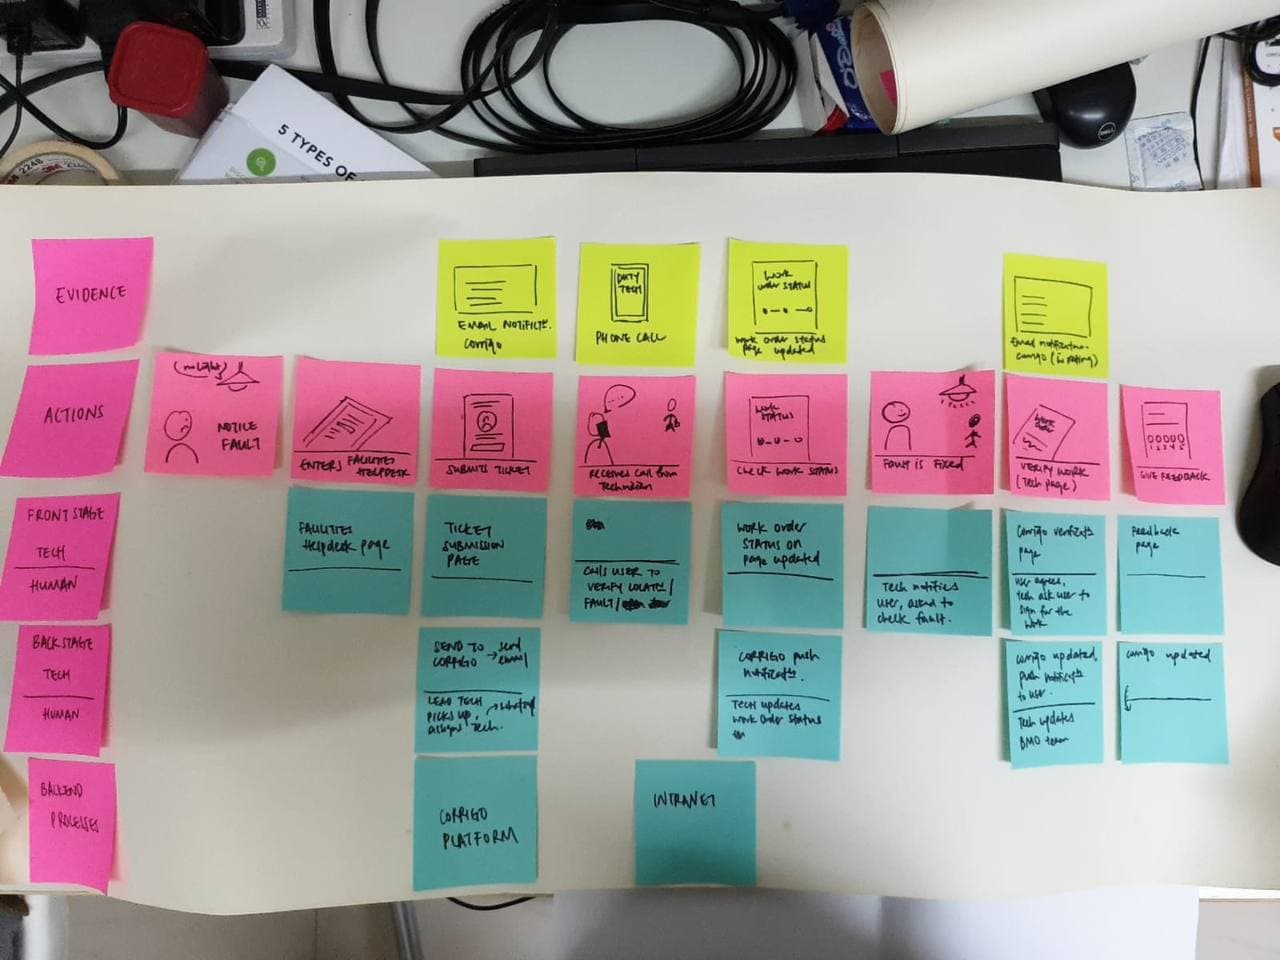 2248
3M
5 TYPES OF
DELL
EVIDENCE
EMAIL NOTIFICTN.
Corrigo
DUTY
TECH
PHONE CALL
WORK
ORDER STATUS
WORK ORDER STATUS
PAGE UPDATED
Email notification.
corrigo (w rating)
ACTIONS
(no light)
NOTICE
FAULT
ENTERS FACILITIES
HELPDESK
SUBMITS TICKET
RECEIVES CALL from
Technician
WORK
STATUS
CHECK WORK STATUS
FAULT is FIXED
VERIFY WORK
(Tech page)
1 2 3 4 5
GIVE FEEDBACK
FRONT STAGE
TECH
HUMAN
FACILITIES
Helpdesk page
TICKET
SUBMISSION
PAGE
CALLS USER TO
VERIFY LOCATN/
FAULT/
WORK ORDER
STATUS ON
page updated
Tech notifies
user, asked to
check fault.
Corrigo verificatn
page
user agrees,
tech ask user to
sign for the
work
Feedback
page
BACKSTAGE
TECH
HUMAN
SEND TO
CORRIGO → send
email
LEAD TECH
PICKS UP, → whatsapp
assigns Tech.
CORRIGO push
notificatn.
TECH updates
Work Order Status
Corrigo updated,
push notificatn
to user.
Tech updates
BMO team
corrigo updated
BACKEND
PROCESSES
CORRIGO
PLATFORM
INTRANET